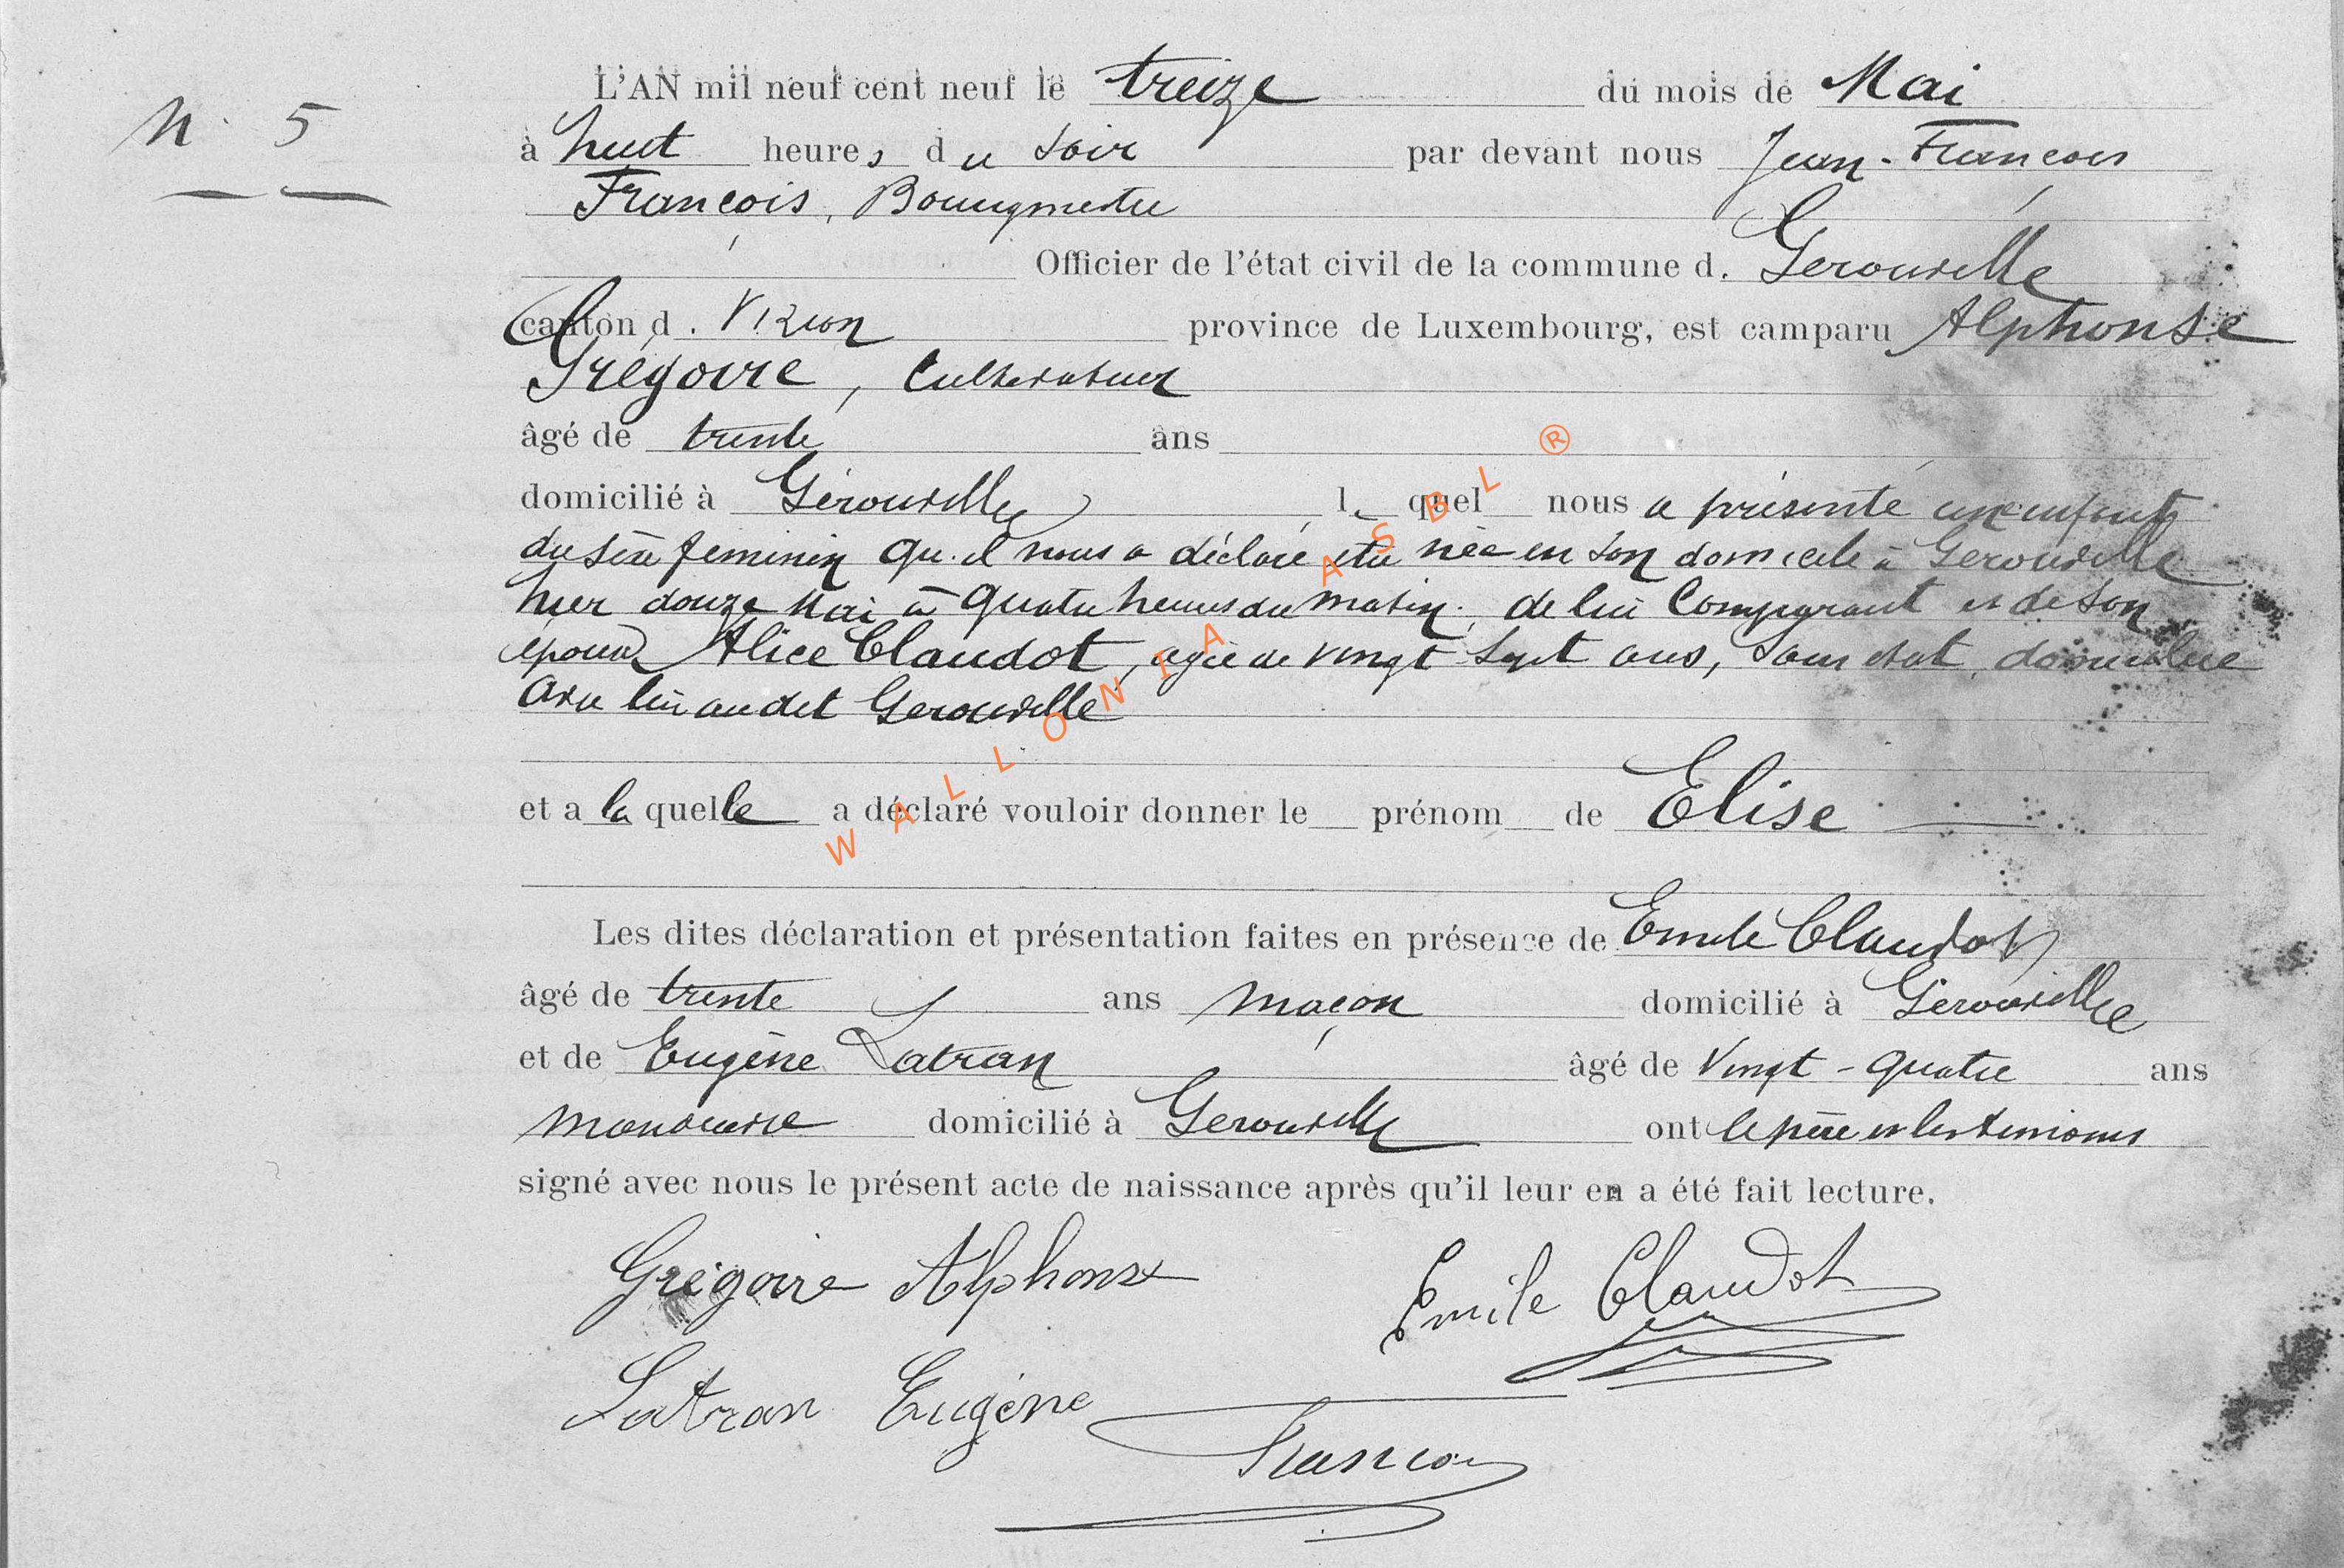 N. 5
L'AN mil neuf cent neuf le treize du mois de Mai
à huit heures du soir par devant nous Jean-François
François, Bourgmestre
Officier de l'état civil de la commune d. Gérouville
canton d. Virton province de Luxembourg, est camparu Alphonse
Grégoire, Cultivateur
âgé de trente ans
domicilié à Gérouville, lequel nous a présenté un enfant
du sexe féminin qu'il nous a déclaré être née en son domicile à Gérouville
hier douze Mai à quatre heures du matin, de lui Comparant et de son
épouse Alice Claudot, agée de vingt sept ans, sans état, domiciliée
avec lui audit Gerouville
et a la quelle a déclaré vouloir donner le prénom de Elise
Les dites déclaration et présentation faites en présence de Emile Claudot
âgé de trente ans maçon domicilié à Gérouville
et de Eugène Latran âgé de Vingt-quatre ans
manœuvre domicilié à Gerouville ont le père et les témoins
signé avec nous le présent acte de naissance après qu'il leur en a été fait lecture.
Grégoire Alphonse
Emile Claudot
Latran Eugène
François
WALLONIA ASBL ®